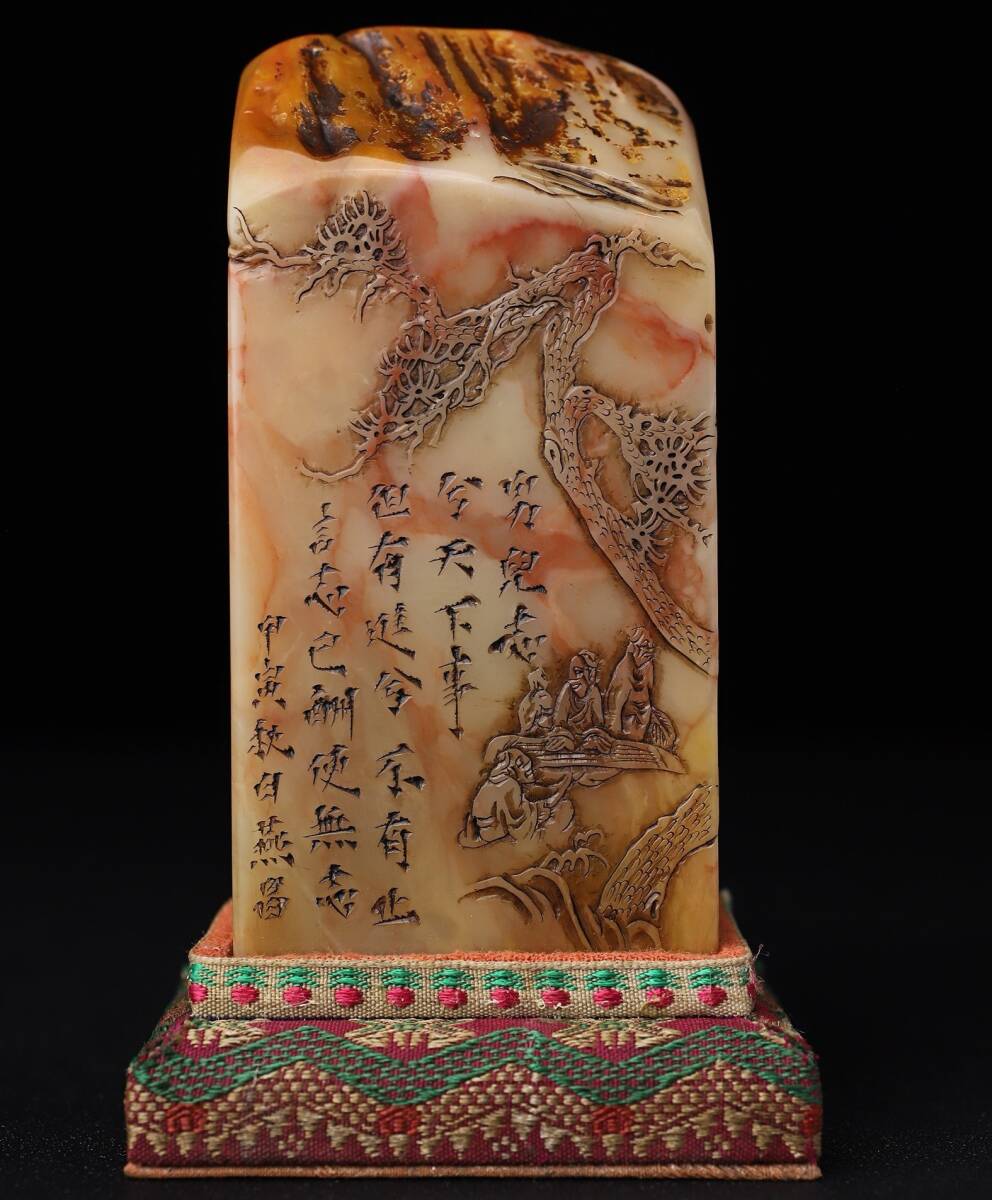 男兒志
兮天下事
但有進兮不有止
言志已酬便無志
甲寅秋日燕